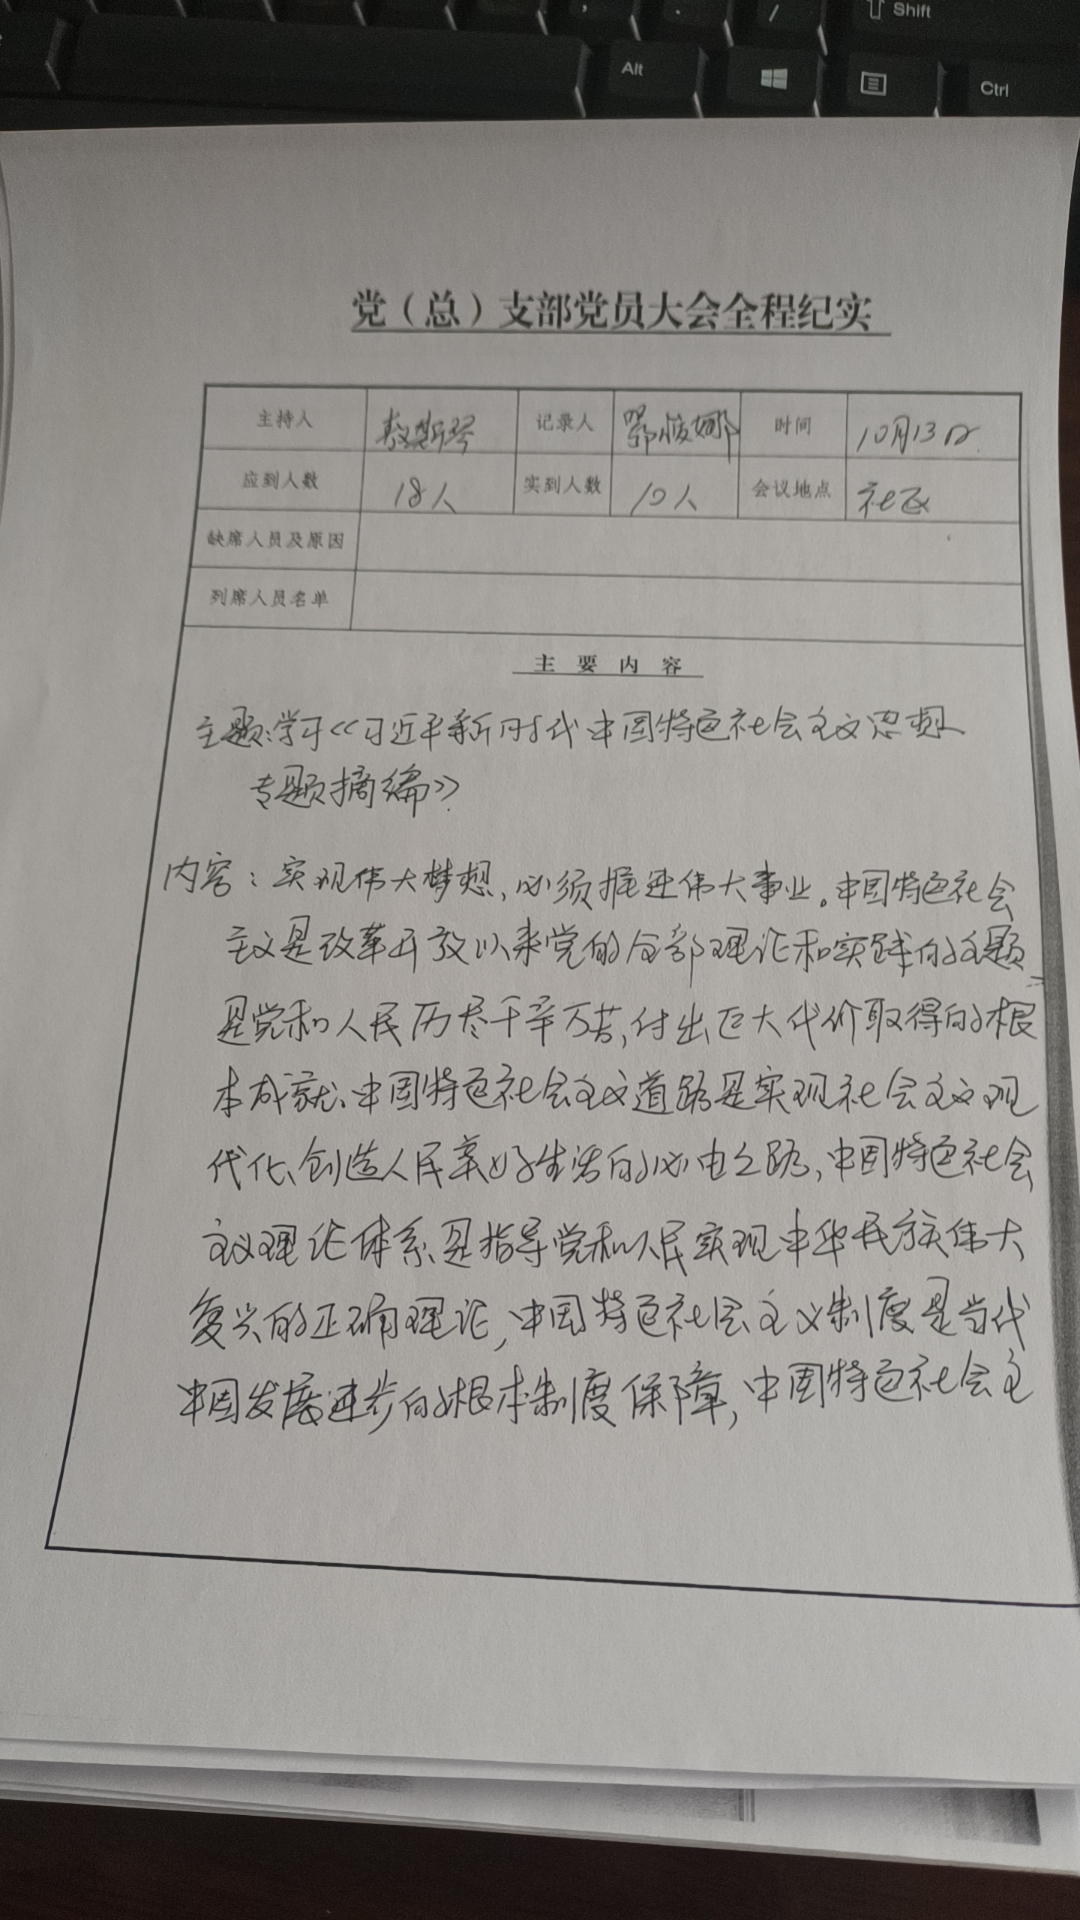 Shift
Alt
Ctrl
党（总）支部党员大会全程纪实
主持人 敖斯琴 记录人 鄂筱娜 时间 10月13日
应到人数 18人 实到人数 10人 会议地点 社区
缺席人员及原因
列席人员名单
主要内容
主题:学习《习近平新时代中国特色社会主义思想
专题摘编》
内容：实现伟大梦想,必须推进伟大事业。中国特色社会
主义是改革开放以来党的全部理论和实践的主题
是党和人民历尽千辛万苦,付出巨大代价取得的根
本成就、中国特色社会主义道路是实现社会主义现
代化、创造人民美好生活的必由之路,中国特色社会
主义理论体系是指导党和人民实现中华民族伟大
复兴的正确理论,中国特色社会主义制度是当代
中国发展进步的根本制度保障,中国特色社会主